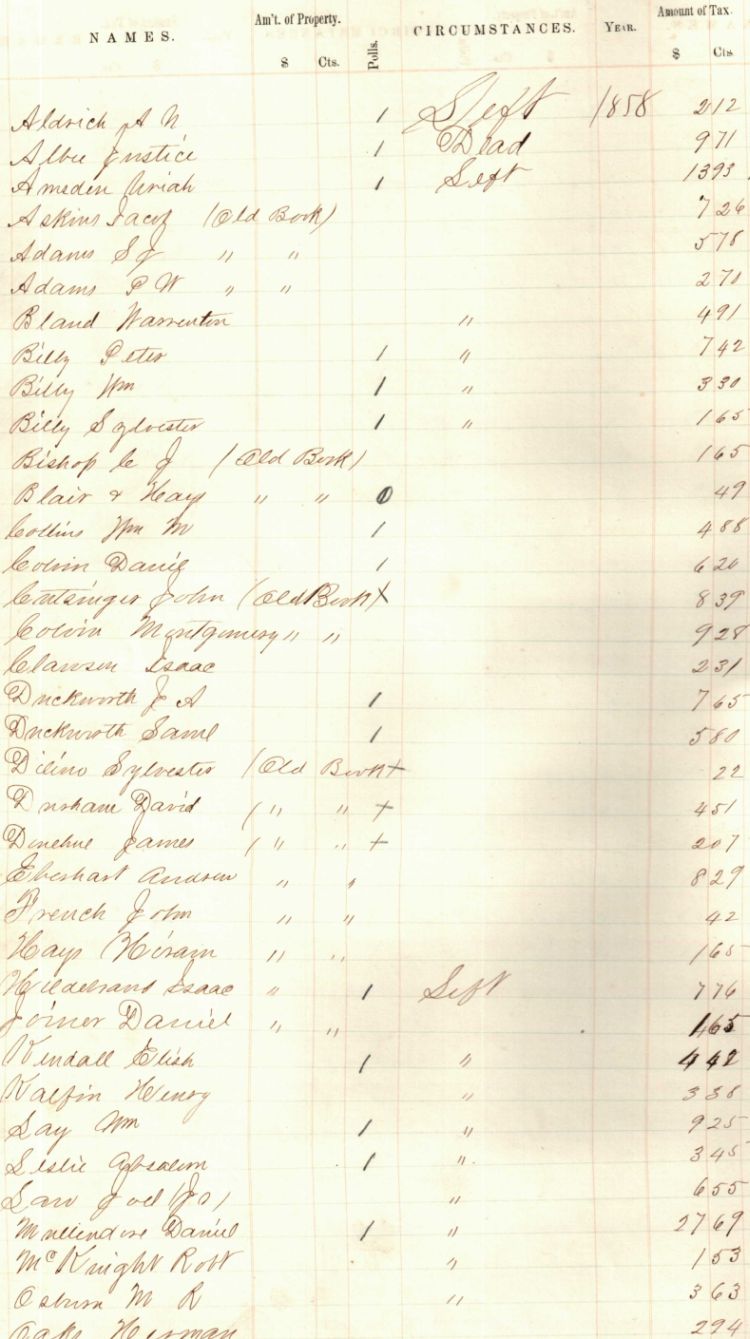 NAMES. Am't. of Property. $ Cts. Polls. CIRCUMSTANCES. YEAR. Amount of Tax. $ Cts
Aldrich A N 1 Left 1858 2 12
Albee Justice 1 Dead 9 71
Amsden Uriah 1 Left 13 93
Askins Jacob (Old Book) 7 26
Adams S J " " 5 78
Adams P W " " 2 70
Bland Warrenton " 4 91
Billy Peter 1 " 7 42
Billy Wm 1 " 3 30
Billy Sylvester 1 " 1 65
Bishop C J (Old Book) 1 65
Blair & Hays " " 0 49
Collins Wm M 1 4 88
Colvin Daniel 1 6 20
Centsinger John (Old Book) X 8 39
Colvin Montgomery " " 9 28
Clawson Isaac 2 31
Duckworth J A 1 7 65
Duckworth Saml 1 5 80
Sylvester (Old Book + 22
Durham David ( " " + 4 51
Donehue James ( " " + 2 07
Eberhart Andrew " " 8 29
French John " " 42
Hays Hiram " " 1 65
Hildebrand Isaac " 1 Left 7 76
Joiner Daniel " " 1 65
Kendall Elish 1 " 4 42
Kalfin Henry " 3 38
Lay Wm 1 " 9 25
Leslie Absalom 1 " 3 45
Law Joel (Jr) " 6 55
Mullendore Daniel 1 " 27 69
McKnight Robt " 1 53
Osburn M R " 3 63
Oaks Herman 2 94